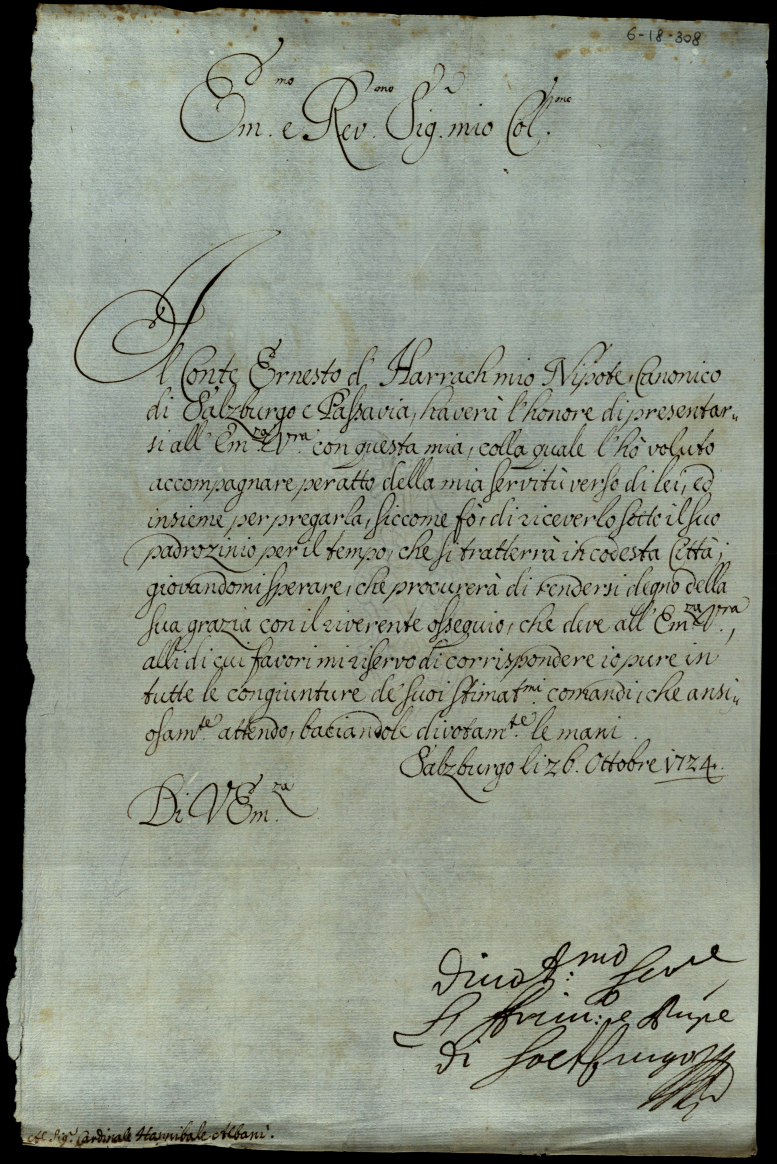 6-18-308
Em.mo e Rev.mo Sig.r mio Col.mo
Il Conte Ernesto d'Harrach mio Nipote, Canonico
di Salzburgo e Passavia, haverà l'honore di presentar=
si all'Em.za V.ra con questa mia, colla quale l'hò voluto
accompagnare per atto della mia servitù verso di lei, ed
insieme per pregarla, siccome fò, di riceverlo sotto il suo
padrozinio per il tempo, che si tratterrà in codesta Città;
giovandomi sperare, che procurerà di rendersi degno della
sua grazia con il riverente osseguio, che deve all'Em.za V.ra,
alli di cui favori mi riservo di corrispondere io pure in
tutte le congiunture de' suoi stimat.mi comandi, che ansi=
osam.te attendo, baciandole divotam.te le mani.
Salzburgo li 26. Ottobre 1724.
Di V Em.za
Divot.mo Ser.re
di Salzburgo
Al Sig.r Cardinale Hannibale Albani.